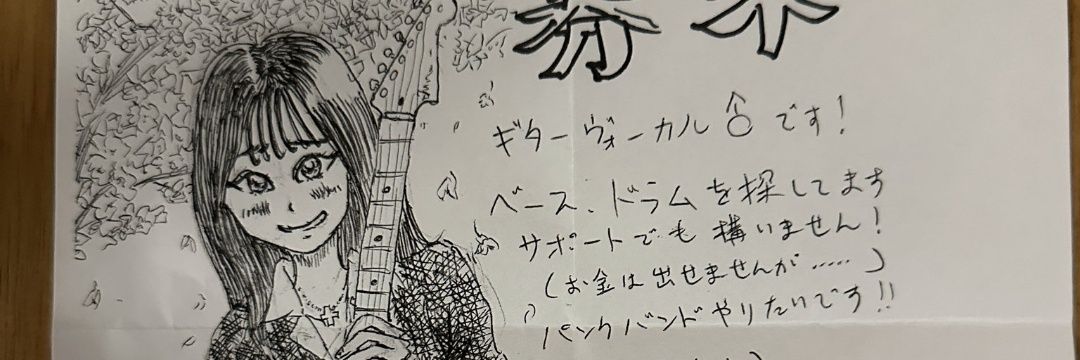 ギターヴォーカル♂です!
ベース、ドラムを探してます
サポートでも構いません!
(お金は出せませんが……)
パンクバンドやりたいです!!